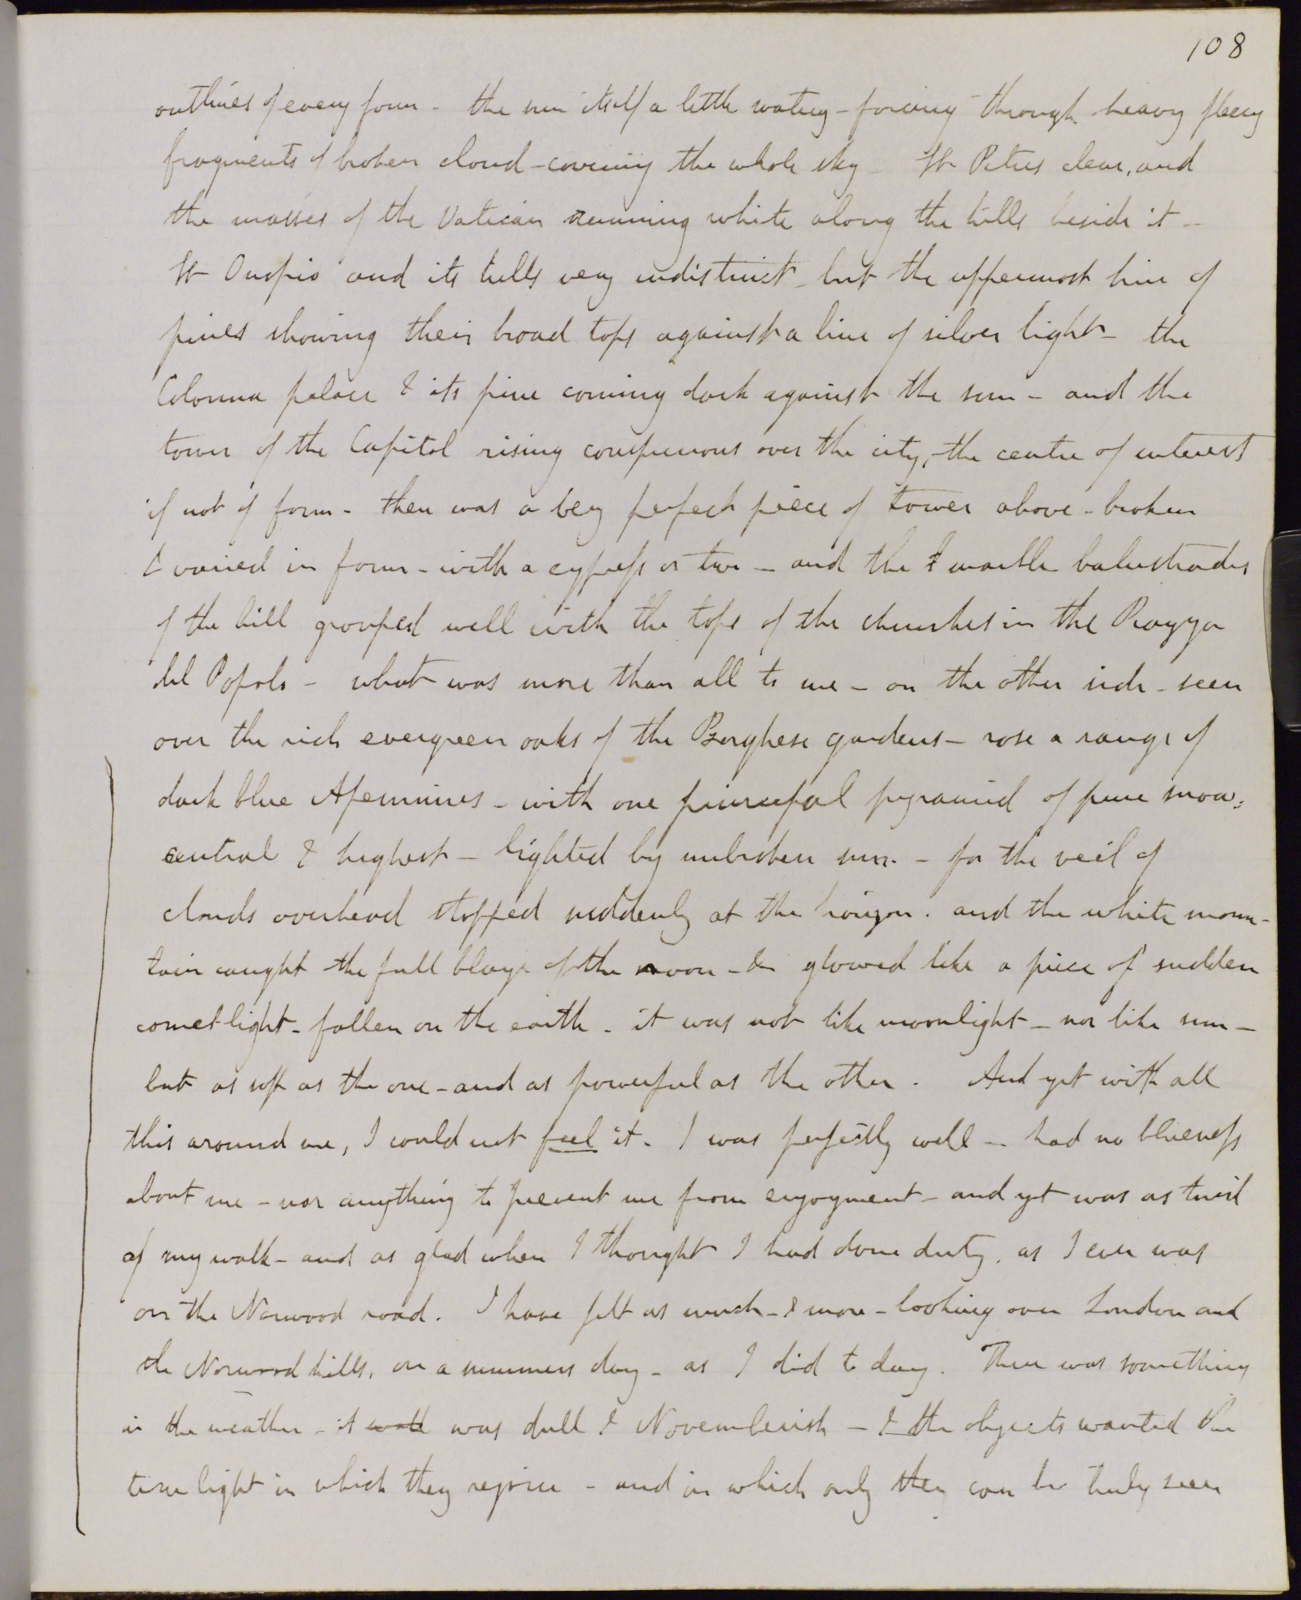 108
outlines of every form - the sun itself a little watery - forcing through heavy fleecy
fragments of broken cloud - covering the whole sky - St Peters clear, and
the masses of the Vatican running white along the hills beside it -
St Onofrio and its hills very indistinct - but the uppermost line of
pines showing their broad tops against a line of silver light - the
Colonna palace & its pine coming dark against the sun - and the
tower of the Capitol rising conspicuous over the city, - the centre of interest
if not of form - there was a very perfect piece of tower above - broken
& varied in form - with a cypress or two - and the marble balustrades
of the hill grouped well with the tops of the churches in the Piazza
del Popolo - what was more than all to me - on the other side - seen
over the rich evergreen oaks of the Borghese gardens - rose a range of
dark blue Apennines - with one principal pyramid of pure snow,
central & highest - lighted by unbroken sun - for the veil of
clouds overhead stopped suddenly at the horizon. and the white moun-
tain caught the full blaze of the noon - & glowed like a piece of sudden
comet-light - fallen on the earth - it was not like moonlight - nor like sun -
but as soft as the one - and as powerful as the other. And yet with all
this around me, I could not feel it. I was perfectly well - had no blueness
about me - nor anything to prevent me from enjoyment - and yet was as tired
of my walk - and as glad when I thought I had done duty, as I ever was
on the Norwood road. I have felt as much - & more - looking over London and
the Norwood hills, on a summers day - as I did to day. There was something
in the weather - it was dull & Novemberish - & the objects wanted the
true light in which they rejoice - and in which only they can be truly seen